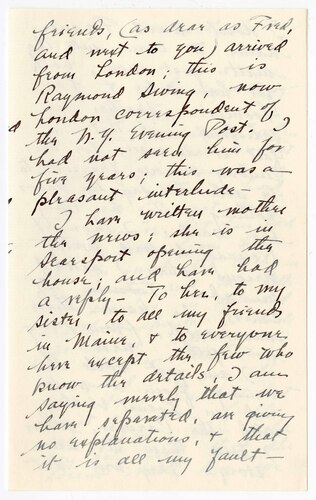 friends, (as dear as Fred,
and next to you) arrived
from London; this is
Raymond Swing, now
London correspondent of
the N.Y. Evening Post. I
had not seen him for
five years; this was a
pleasant interlude—
I have written mother
the news; she is in
Searsport opening the
house; and have had
a reply— To her, to my
sister, to all my friends
in Maine, & to everyone
here except the few who
know the details, I am
saying merely that we
have separated, are giving
no explanations, & that
it is all my fault—